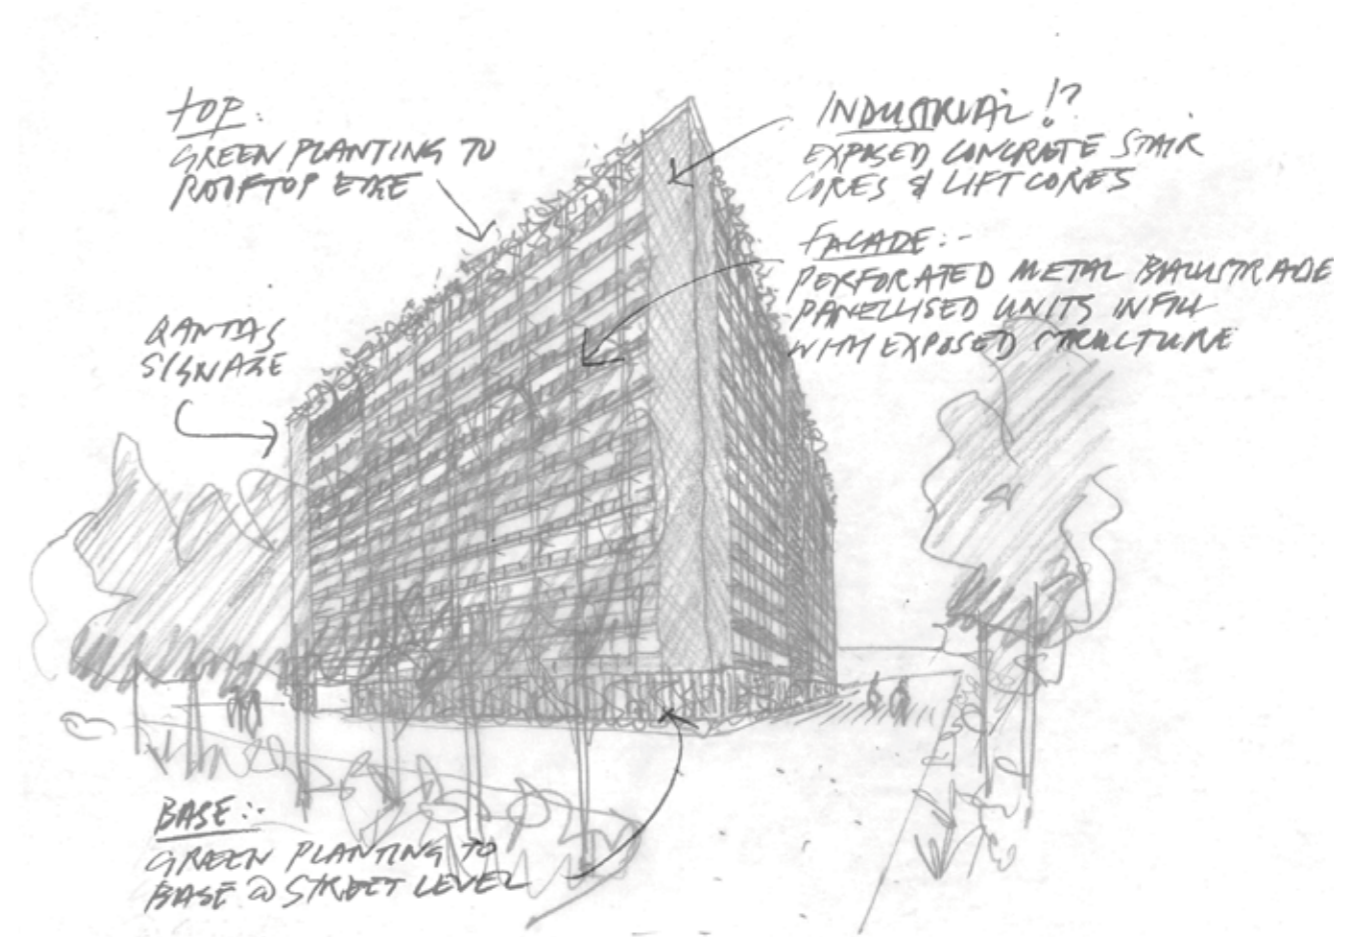 TOP:
GREEN PLANTING TO
ROOFTOP EDGE
INDUSTRIAL!?
EXPOSED CONCRETE STAIR
CORES & LIFT CORES
FACADE:-
PERFORATED METAL BALUSTRADE
PANELLISED UNITS INFILL
WITH EXPOSED STRUCTURE
QANTAS
SIGNAGE
BASE:-
GREEN PLANTING TO
BASE @ STREET LEVEL